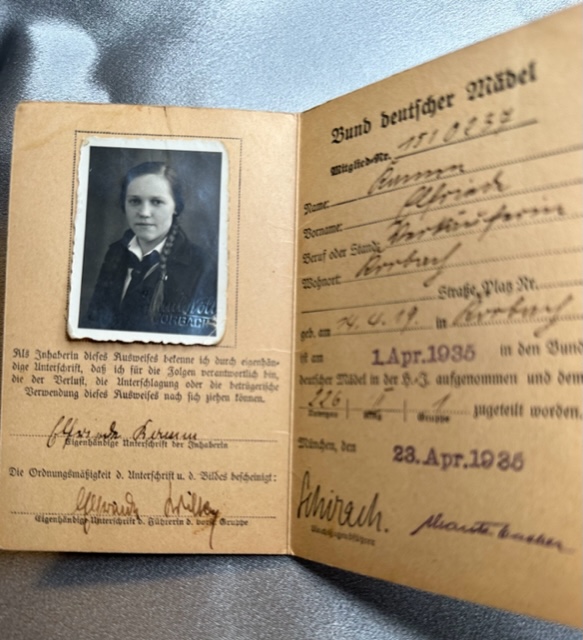 KORBACH
Als Inhaberin dieses Ausweises bekenne ich durch eigenhän-
dige Unterschrift, daß ich für die Folgen verantwortlich bin,
die der Verlust, die Unterschlagung oder die betrügerische
Verwendung dieses Ausweises nach sich ziehen können.
Elfriede Kamm
Eigenhändige Unterschrift der Inhaberin
Die Ordnungsmäßigkeit d. Unterschrift u. d. Bildes bescheinigt:
Eigenhändige Unterschrift d. Führerin d. Gruppe
Bund deutscher Mädel
Mitglieds-Nr.
Name: Kamm
Vorname: Elfriede
Beruf oder Stand: Verkäuferin
Wohnort: Korbach
Straße, Platz Nr.
geb. am 14. 4. 19. in Korbach
ist am 1.Apr.1935 in den Bund
deutscher Mädel in der H.-J. aufgenommen und dem
226 I 1 zugeteilt worden.
Gruppe
München, den 23.Apr.1935
Schirach.
Reichsjugendführer